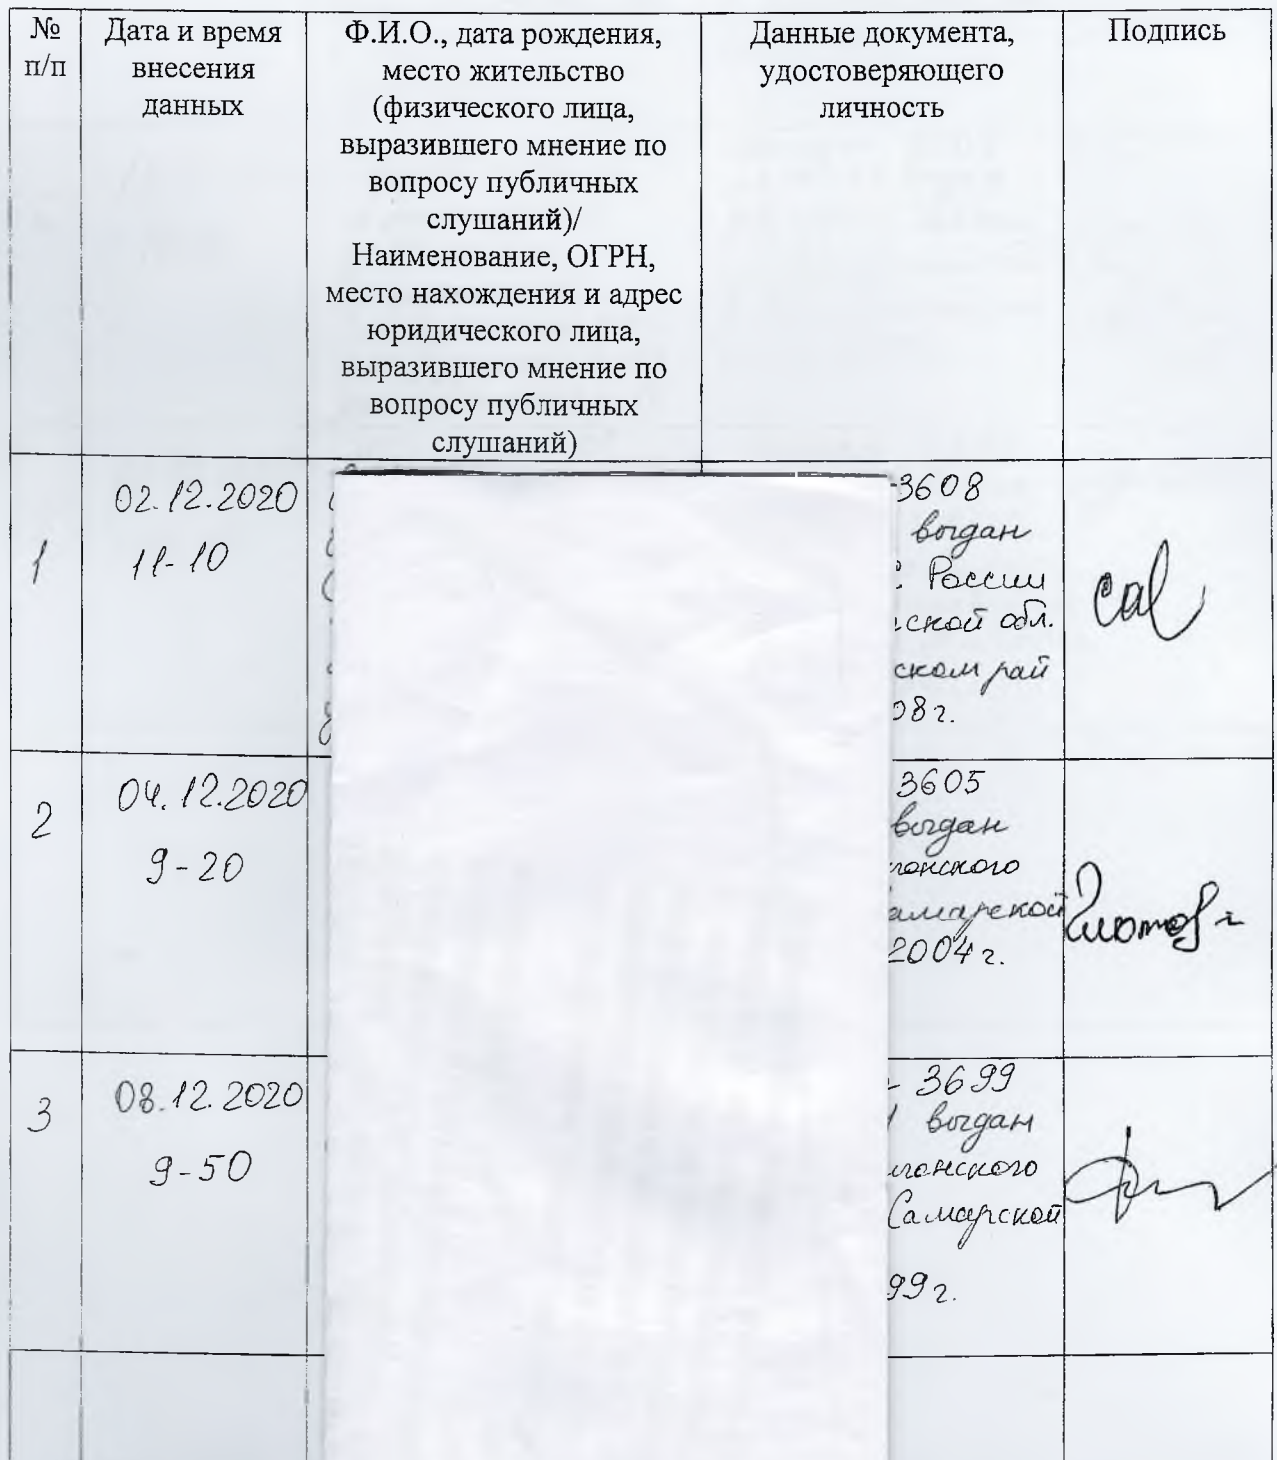 № п/п
Дата и время внесения данных
Ф.И.О., дата рождения,
место жительство
(физического лица,
выразившего мнение по
вопросу публичных
слушаний)/
Наименование, ОГРН,
место нахождения и адрес
юридического лица,
выразившего мнение по
вопросу публичных
слушаний)
Данные документа,
удостоверяющего
личность
Подпись
1
02.12.2020
11-10
3608
выдан
России
ской обл.
ском рай
08г.
2
04.12.2020
9-20
3605
выдан
амарской
2004г.
3
08.12.2020
9-50
- 3699
выдан
Самарской
99г.